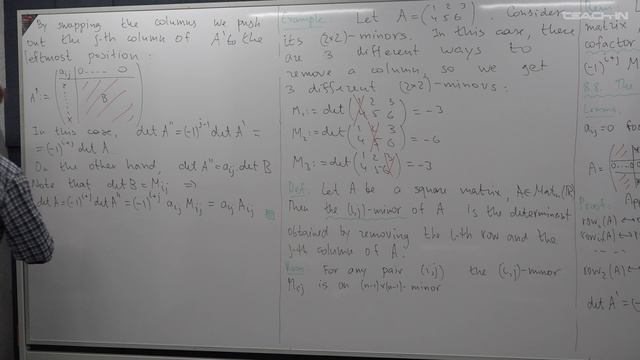 By swapping the columns we push
out the j-th column of A' to the
leftmost position:
A'' = ( aij 0 .... 0
B )
In this case, det A'' = (-1)^{j-1} det A' =
= (-1)^{i+j} det A
On the other hand, det A'' = aij · det B
Note that det B = Mij ⇒
det A = (-1)^{i+j} det A'' = (-1)^{i+j} aij Mij = aij Aij
Example. Let A = ( 1 2 3
4 5 6 ) Consider
its (2×2)-minors. In this case, there
are 3 different ways to
remove a column, so we get
3 different (2×2)-minors:
M1 := det ( 1 2 3
4 5 6 ) = -3
M2 := det ( 1 2 3
4 5 6 ) = -6
M3 := det ( 1 2 3
4 5 6 ) = -3
Def. Let A be a square matrix, A ∈ Matn(R)
Then the (i,j)-minor of A is the determinant
obtained by removing the i-th row and the
j-th column of A.
Rem. For any pair (i,j) the (i,j)-minor
Mij is an (n-1)×(n-1)-minor
matrix
cofactor
(-1)^{i+j} M
8.8. The
Lemma
aij = 0 for
A =
Proof. App
row
row
row2(A)
det A' = (-
TEACH-IN